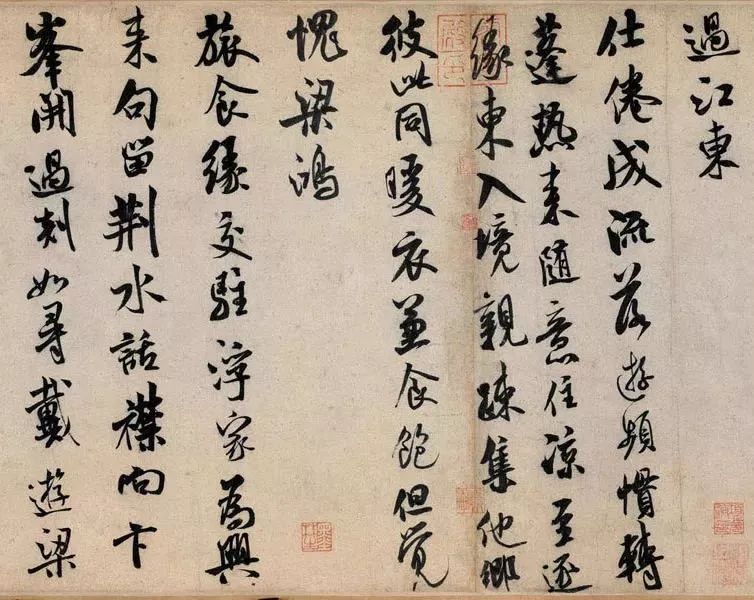 過江東
仕倦成流落遊頻慣轉
蓬熱来随意住凉至逐
緣東入境親踈集他鄉
彼此同暖衣兼食飽但覺
愧梁鴻
旅食緣交駐浮家為興
来句留荆水話襟向卞
峯開過剡如尋戴遊梁